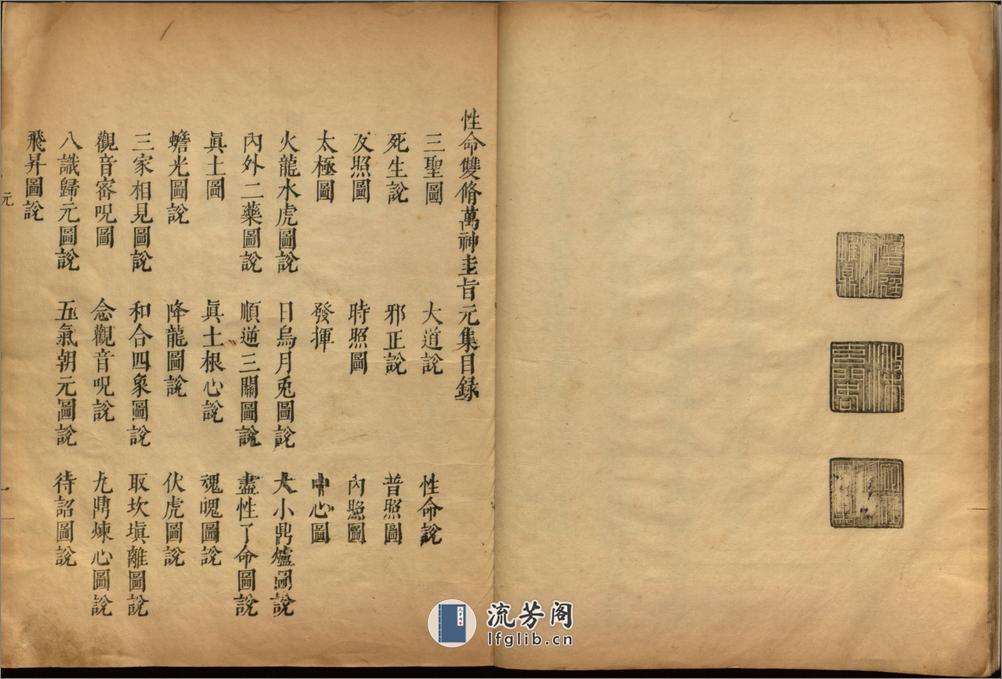 性命雙脩萬神圭旨元集目録
三聖圖 大道說 性命說
死生說 邪正說 普照圖
反照圖 時照圖 內照圖
太極圖 發揮 中心圖
火龍水虎圖說 日烏月兎圖說 大小鼎爐圖說
內外二藥圖說 順逆三關圖說 盡性了命圖說
眞土圖 眞土根心說 魂魄圖說
蟾光圖說 降龍圖說 伏虎圖說
三家相見圖說 和合四象圖說 取坎塡離圖說
觀音密呪圖 念觀音呪說 九鼎煉心圖說
八識歸元圖說 五氣朝元圖說 待詔圖說
飛昇圖說
元
一
流芳阁
lfglib.cn